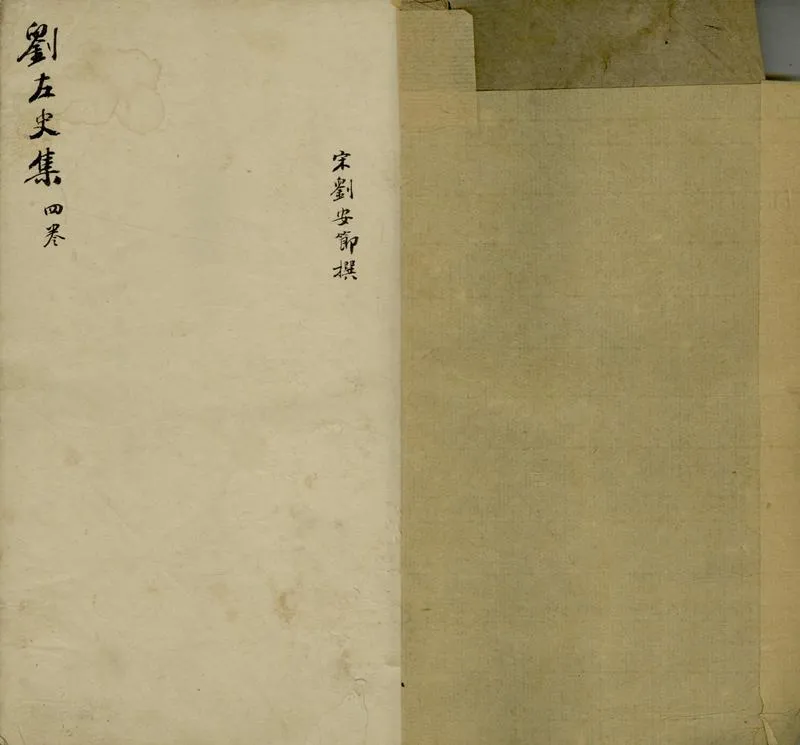 宋劉安節撰
劉左史集 四卷